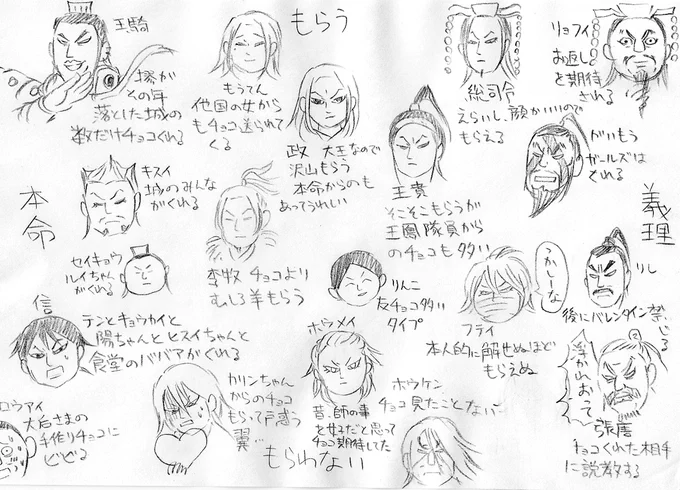 もらう
王騎
摎が
その年
落とした城の
数だけチョコくれる
もうてん
他国の女から
もチョコ送られて
くる
政 大王なので
沢山もらう
本命からのも
あってうれしい
総司令
えらいし、顔がいいので
もらえる
リョフイ
お返し
を期待
される
王賁
そこそこもらうが
王鳳隊員から
のチョコも多い
がいもう
ガールズは
くれる
本命
義理
キスイ
城のみんな
がくれる
セイキョウ
ルイちゃん
がくれる
李牧 チョコより
むしろ羊もらう
りんこ
友チョコ多い
タイプ
つかしーな
フライ
本人的に解せぬほど
もらえぬ
りし
後にバレンタイン禁じる
信
テンとキョウカイと
陽ちゃんとヒスイちゃんと
食堂のババアがくれる
ロウアイ
大后さまの
手作りチョコに
ビビる
カリンちゃん
からのチョコ
もらって戸惑う
翼
ホウメイ
昔、師の事
を女子だと思って
チョコ期待してた
ホウケン
チョコ見たことない
浮かれおって
張唐
チョコくれた相手
に説教する
もらわない